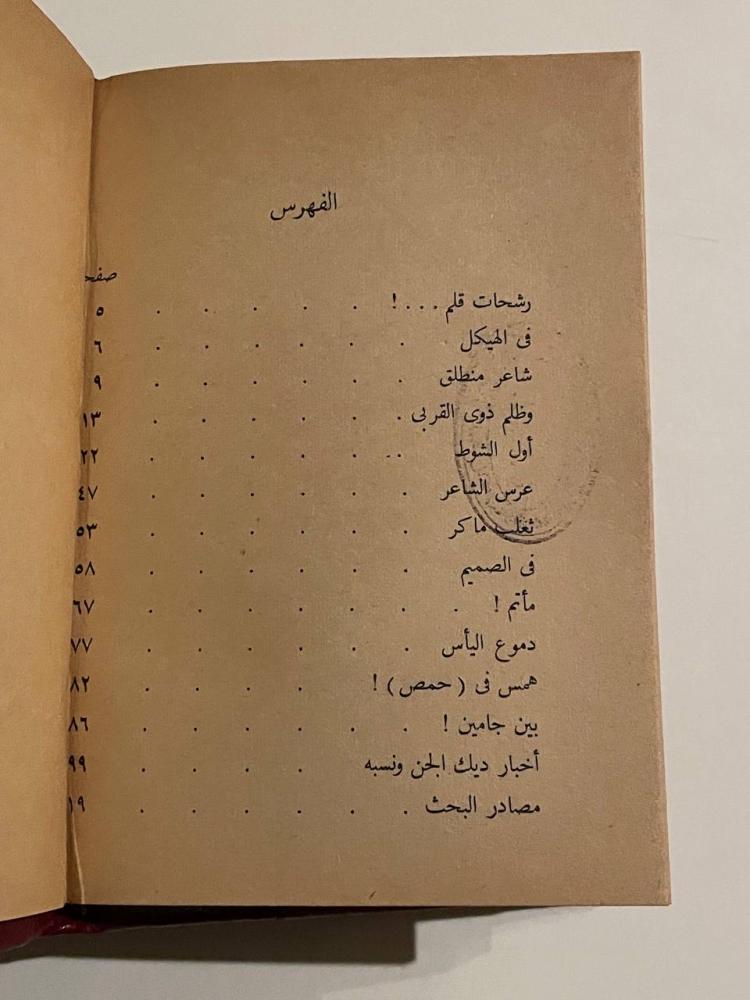 الفهرس
صفح
رشحات قلم . . . ! . . . . . ٥
فى الهيكل . . . . . . ٦
شاعر منطلق . . . . . . ٩
وظلم ذوى القربى . . . . . . ١٣
أول الشوط . . . . . . ٢٢
عرس الشاعر . . . . . . ٤٧
ثعلب ماكر . . . . . . ٥٣
فى الصميم . . . . . . ٥٨
مأتم ! . . . . . . . ٦٧
دموع اليأس . . . . . . ٧٧
همس فى ( حمص ) ! . . . . ٨٢
بين جامين ! . . . . . . ٨٦
أخبار ديك الجن ونسبه . . . . ٩٩
مصادر البحث . . . . . . ١٩